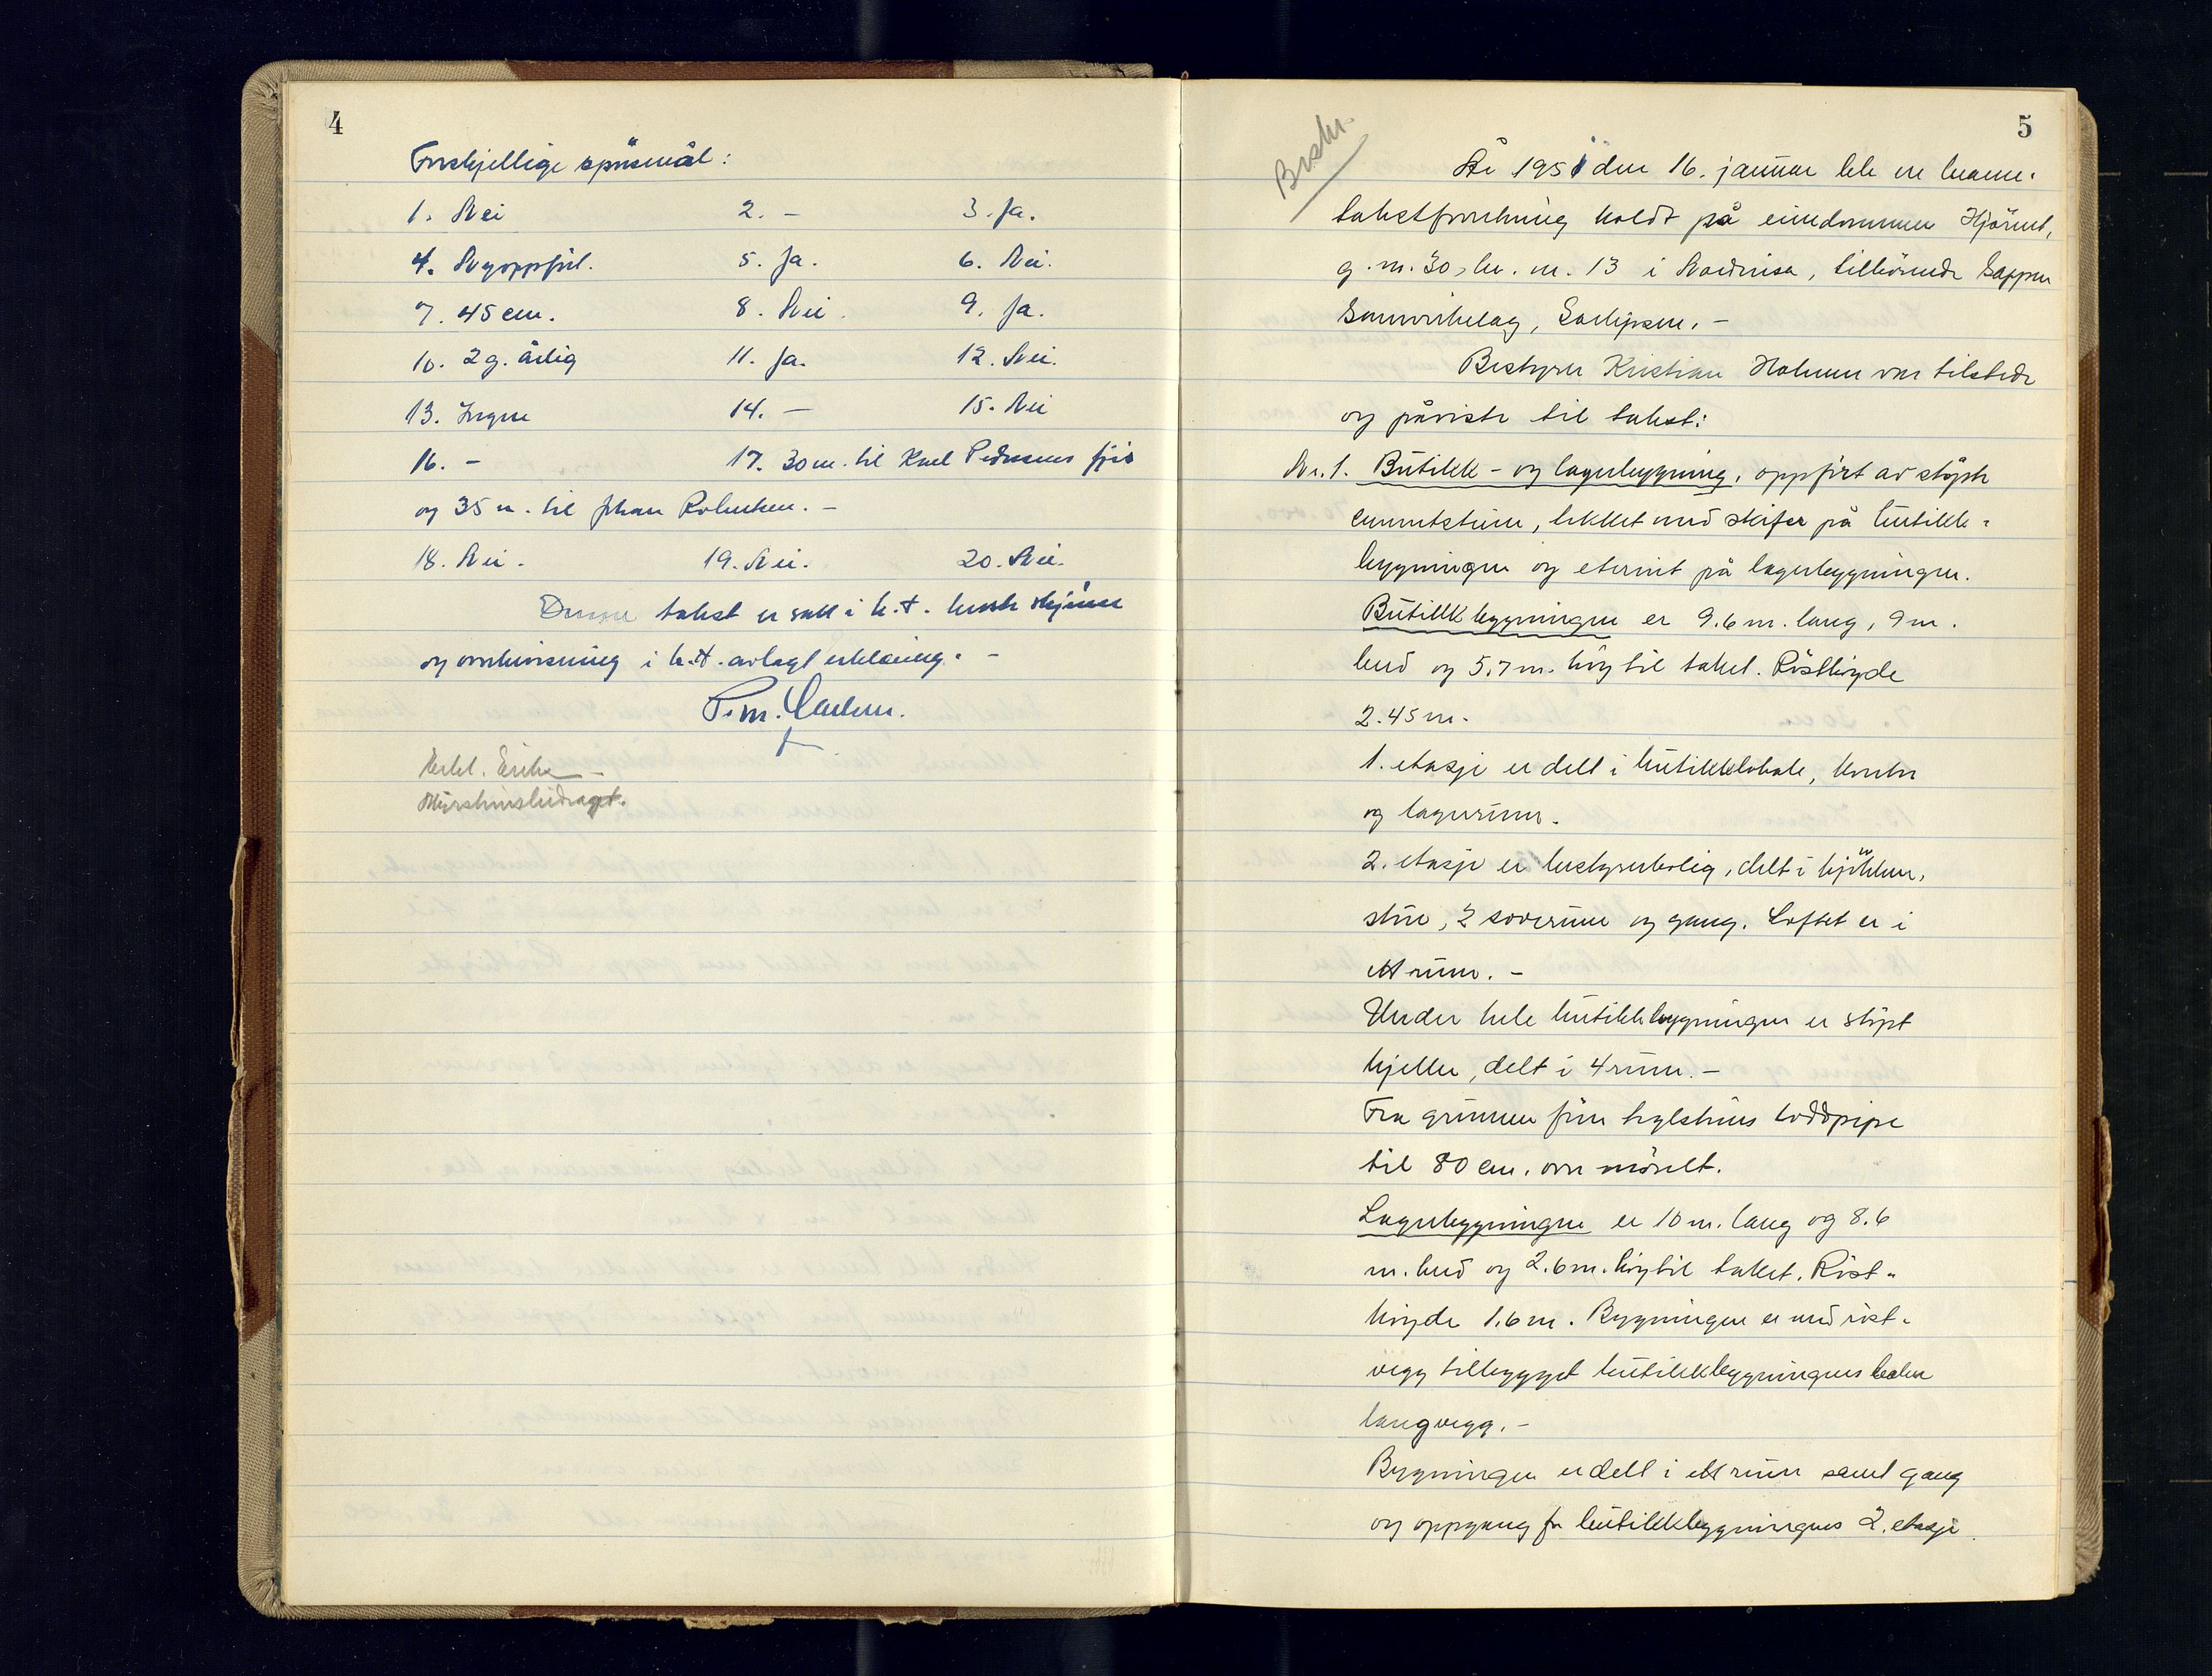 4
Forskjellige spörsmål:
1. Nei 2. – 3. Ja.
4. Nyoppfört. 5. Ja. 6. Nei.
7. 45 cm. 8. Nei. 9. Ja.
10. 2 g. årlig 11. Ja. 12. Nei.
13. Ingen 14. – 15. Nei
16. – 17. 30 m. til Karl Pedersens fjös
og 35 m. til Johan . –
18. Nei. 19. Nei. 20. Nei.
Denne takst er satt i h.t. beste skjönn
og overbevisning i h.t. avlagt erklæring. –
P. M. 
5
Beskr.
År 1951 den 16. januar ble en brann-
takstforretning holdt på eiendommen Hjörnet,
g. nr. 30, br. nr. 13 i Nordreisa, tilhörende Sappen
Samvirkelag, Sörkjosen. –
Bestyrer Kristian Holmen var tilstede
og påviste til takst:
Nr. 1. Butikk- og lagerbygning, oppfört av stöpte
cementstein, tekket med skifer på butikk-
bygningen og eternit på lagerbygningen.
Butikkbygningen er 9.6 m. lang, 9 m.
bred og 5.7 m. höy til taket. Rösthöyde
2.45 m.
1. etasje er delt i butikklokale, kontor
og lagerrum.
2. etasje er bestyrerbolig, delt i kjökken,
stue, 2 soverum og gang. Loftet er i
ett rum. –
Under hele butikkbygningen er stöpt
kjeller, delt i 4 rum. –
Fra grunnen förer teglsteins loddpipe
til 80 cm. over mönet.
Lagerbygningen er 10 m. lang og 8.6
m. bred og 2.6 m. höy til taket. Röst-
höyde 1.6 m. Bygningen er med röst-
vegg tilbygget butikkbygningens bakre
langvegg. –
Bygningen er delt i ett rum samt gang
og oppgang for butikkbygningens 2. etasje.